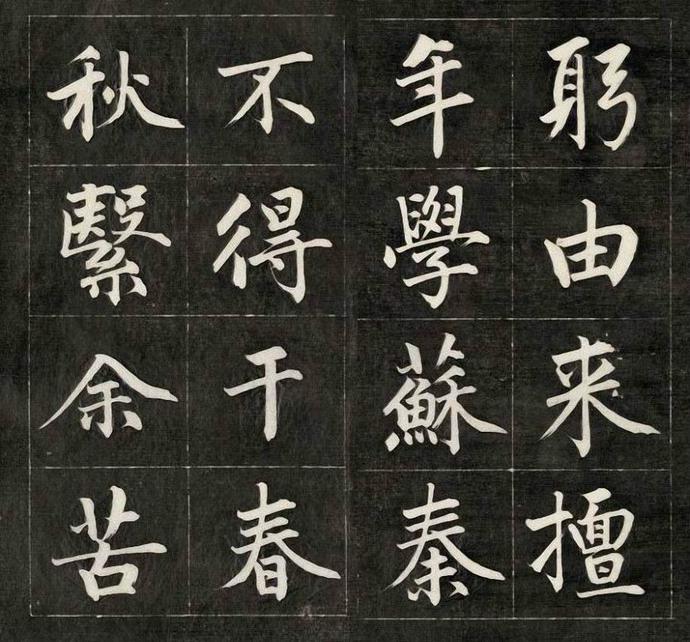 躬由来擅
年學蘇秦
不得干春
秋繫余苦